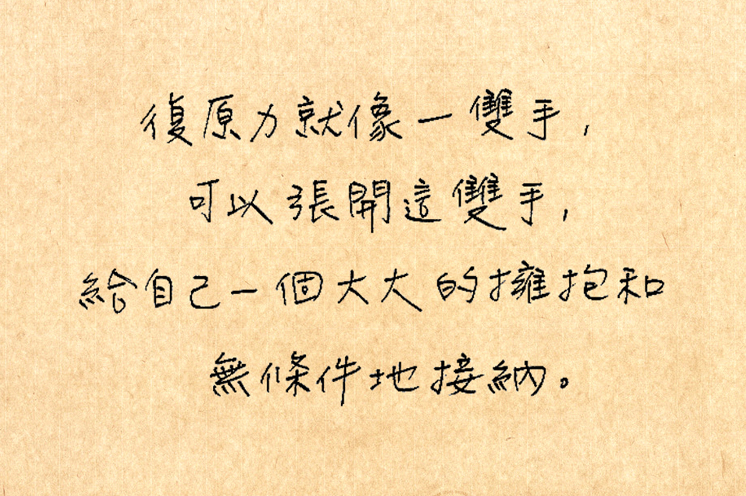 復原力就像一雙手，
可以張開這雙手，
給自己一個大大的擁抱和
無條件地接納。